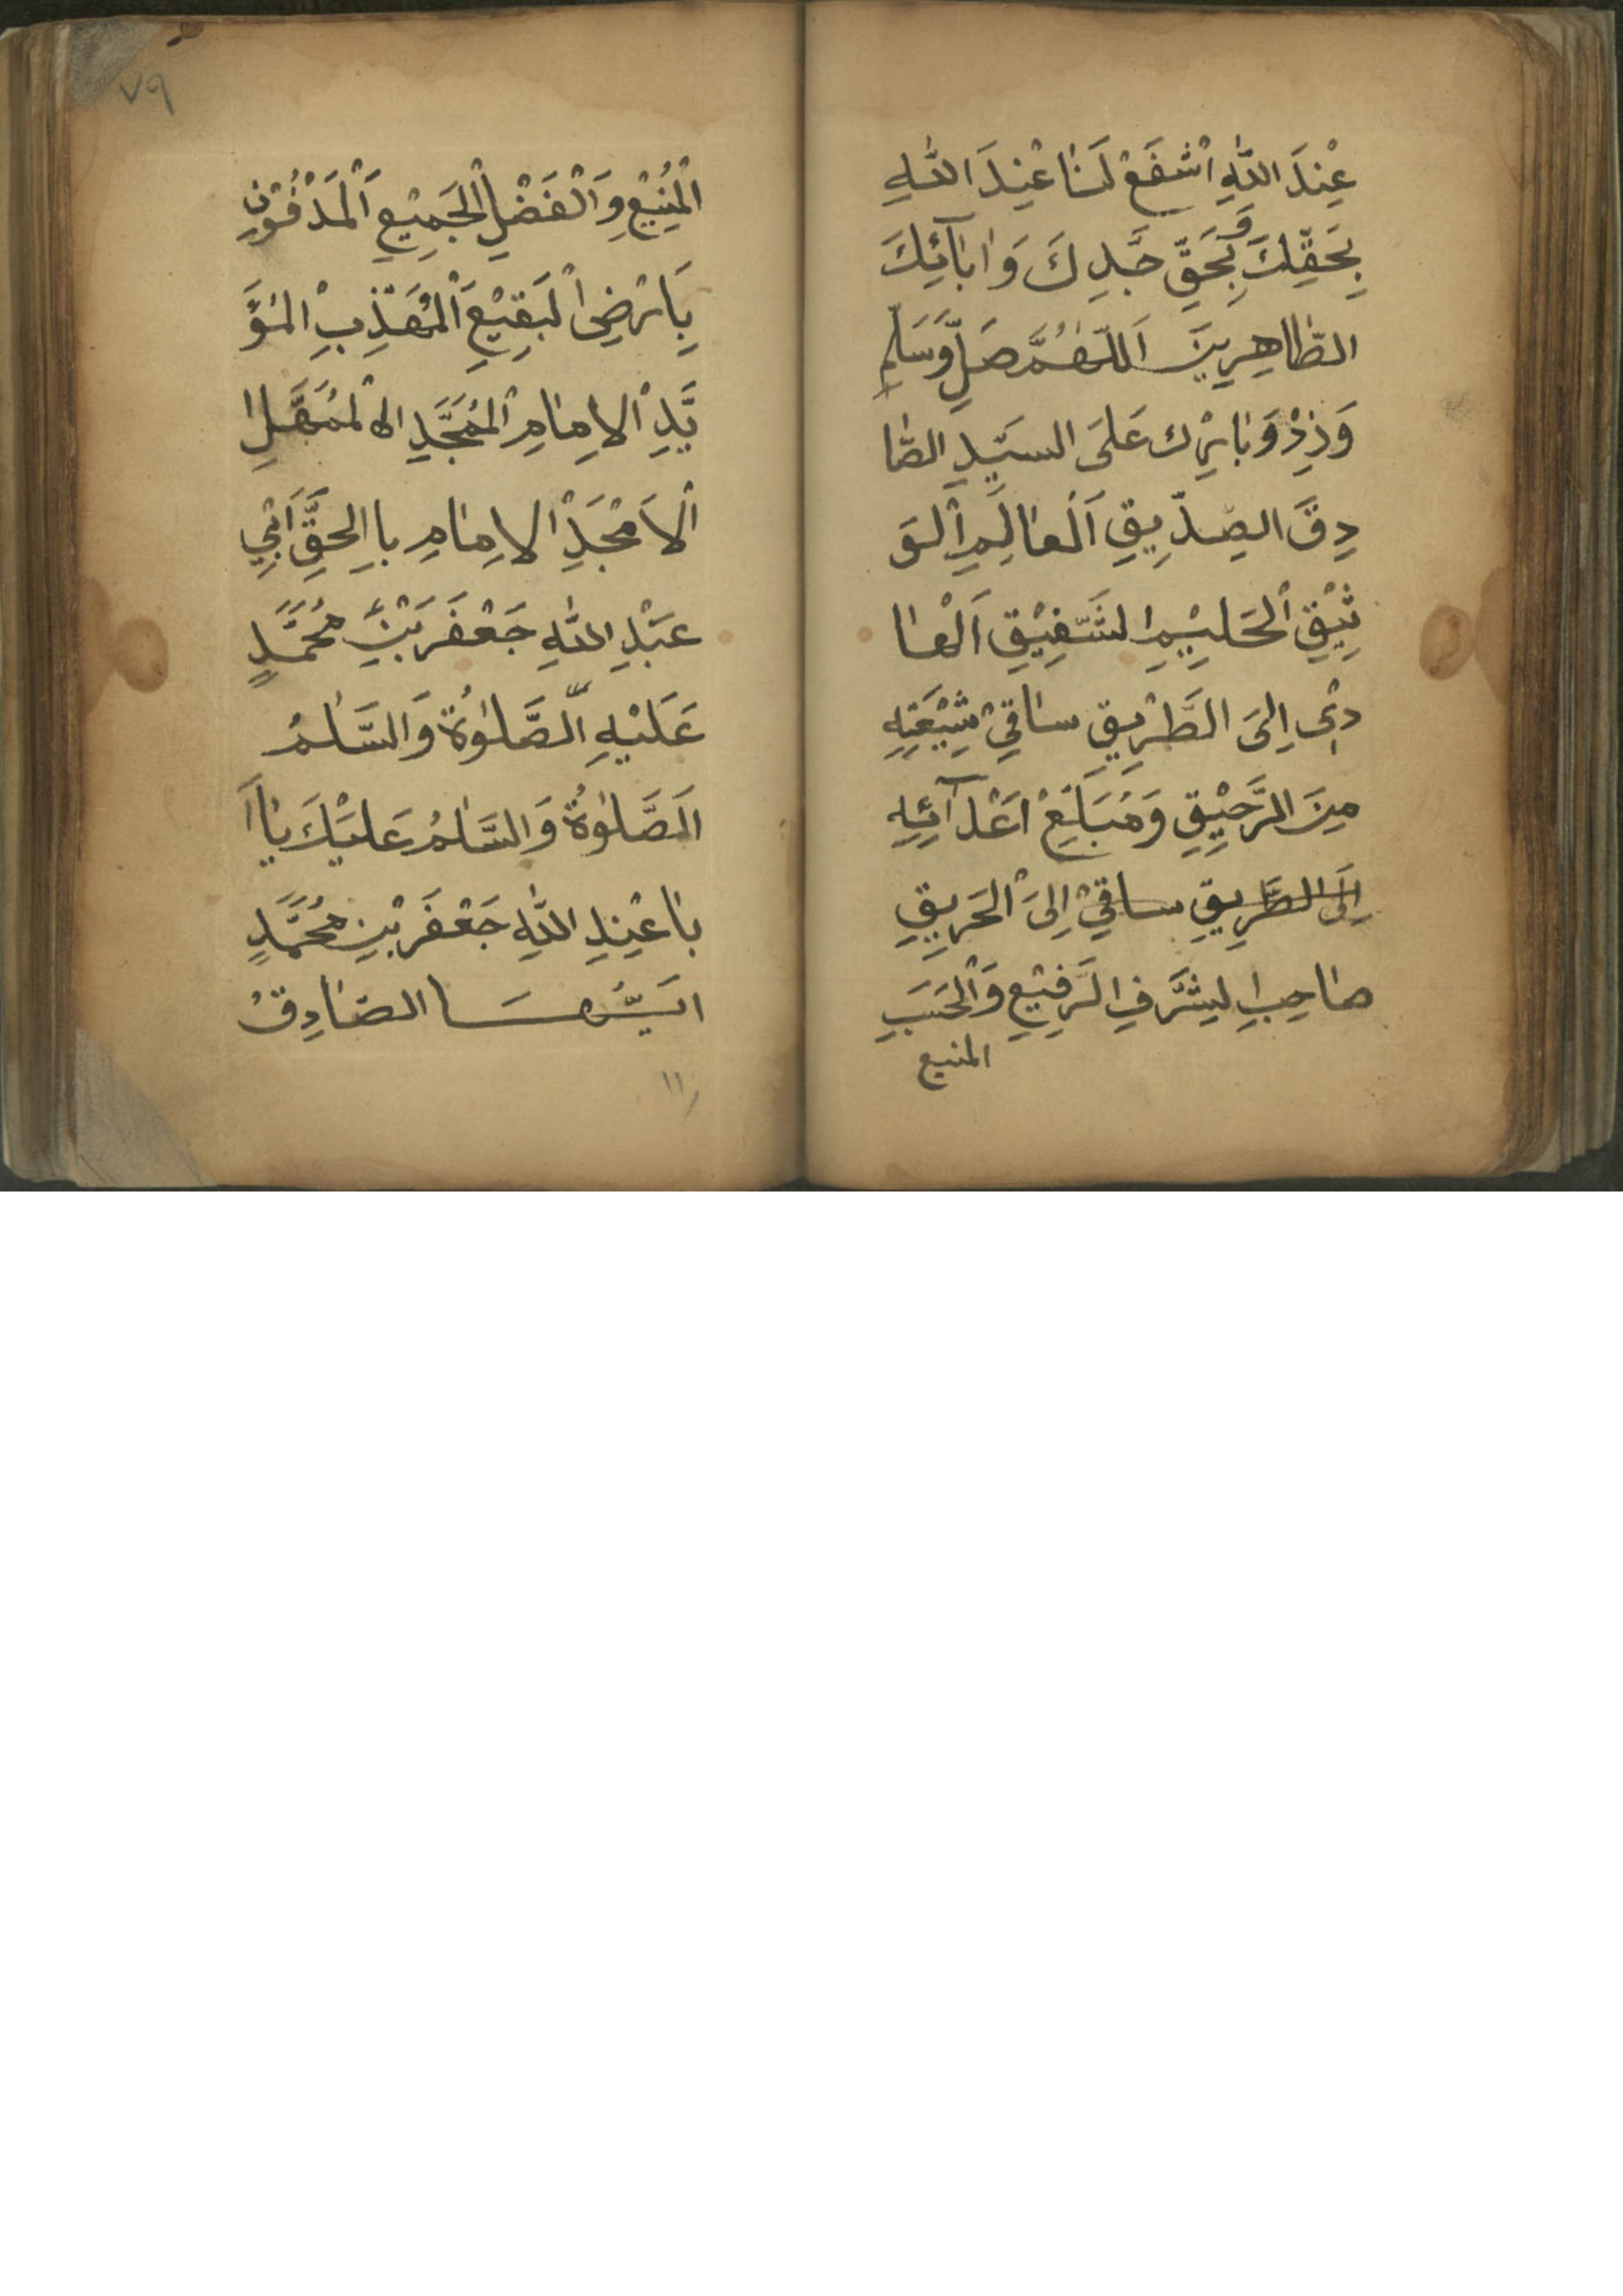 عِنْدَ اللّٰهِ اشْفَعْ لَنٰا عِنْدَ اللّٰهِ
بِحَقِّكَ وَ بِحَقِّ جَدِّكَ وَ اٰبٰآئِكَ
الطّٰاهِرِينَ اَللّٰهُمَّ صَلِّ وَسَلِّمْ
وَ زِدْ وَ بٰارِك عَلَى السَيِّدِ الصّٰا
دِقَ الصِدّيِقِ اَلْعٰالِمِ الْوَ
ثِيْقِ الْحَلِيْمِ الشَّفِيْقِ اَلْهٰا
دِي اِلىَ الطَّرِيقِ سٰاقِيْ شِيْعَتِهِ
مِنَ الرَّحِيْقِ وَ مُبَلِّغْ اَعْدآئِهِ
اِلَى الطَّرِيقِ ساقِيْ اِلىَ الْحَرِيقِ
صٰاحِبِ الشَّرَفِ الرَفِيْعِ وَالْحَسَبِ
المنيع
٧٩
الْمُنِيْعِ وَالْفَضْلِ الْجَمِيْعِ اَلْمَدْفُوْنِ
بِاَرْضِ الْبَقِيْعِ اَلْمُهَذَّبِ الْمُؤَ
يَّدِ الْاِمٰامِ الْمُمَجَّدِ
الْاَمْجَدِ الْاِمٰامِ باِالحَقِّ اَبِي
عَبْدِ اللّٰهِ جَعْفَرَ بْنِ مُحَمَّدٍ
عَلَيْهِ الصَّلٰوةُ وَالسَّلٰمُ
اَلصَّلٰوةُ وَ السَّلٰمُ عَلَيْكَ يٰا اَ
بٰا عَبْدِ اللّٰهِ جَعْفَرَ بْنِ مُحَمَّدٍ
اَيُّهَا الصّٰادِقُ
١١